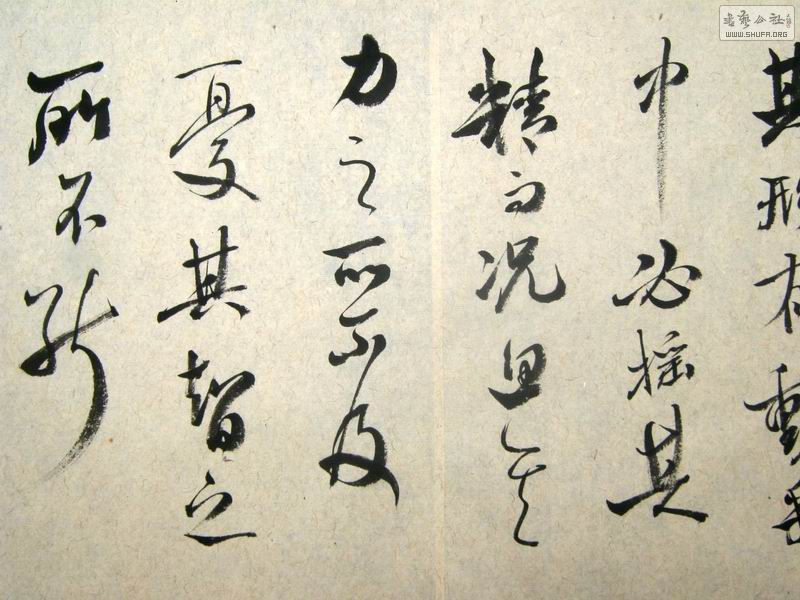 其形有動乎
中必摇其
精而況思其
力之所不及
憂其智之
所不能
书艺公社
WWW.SHUFA.ORG